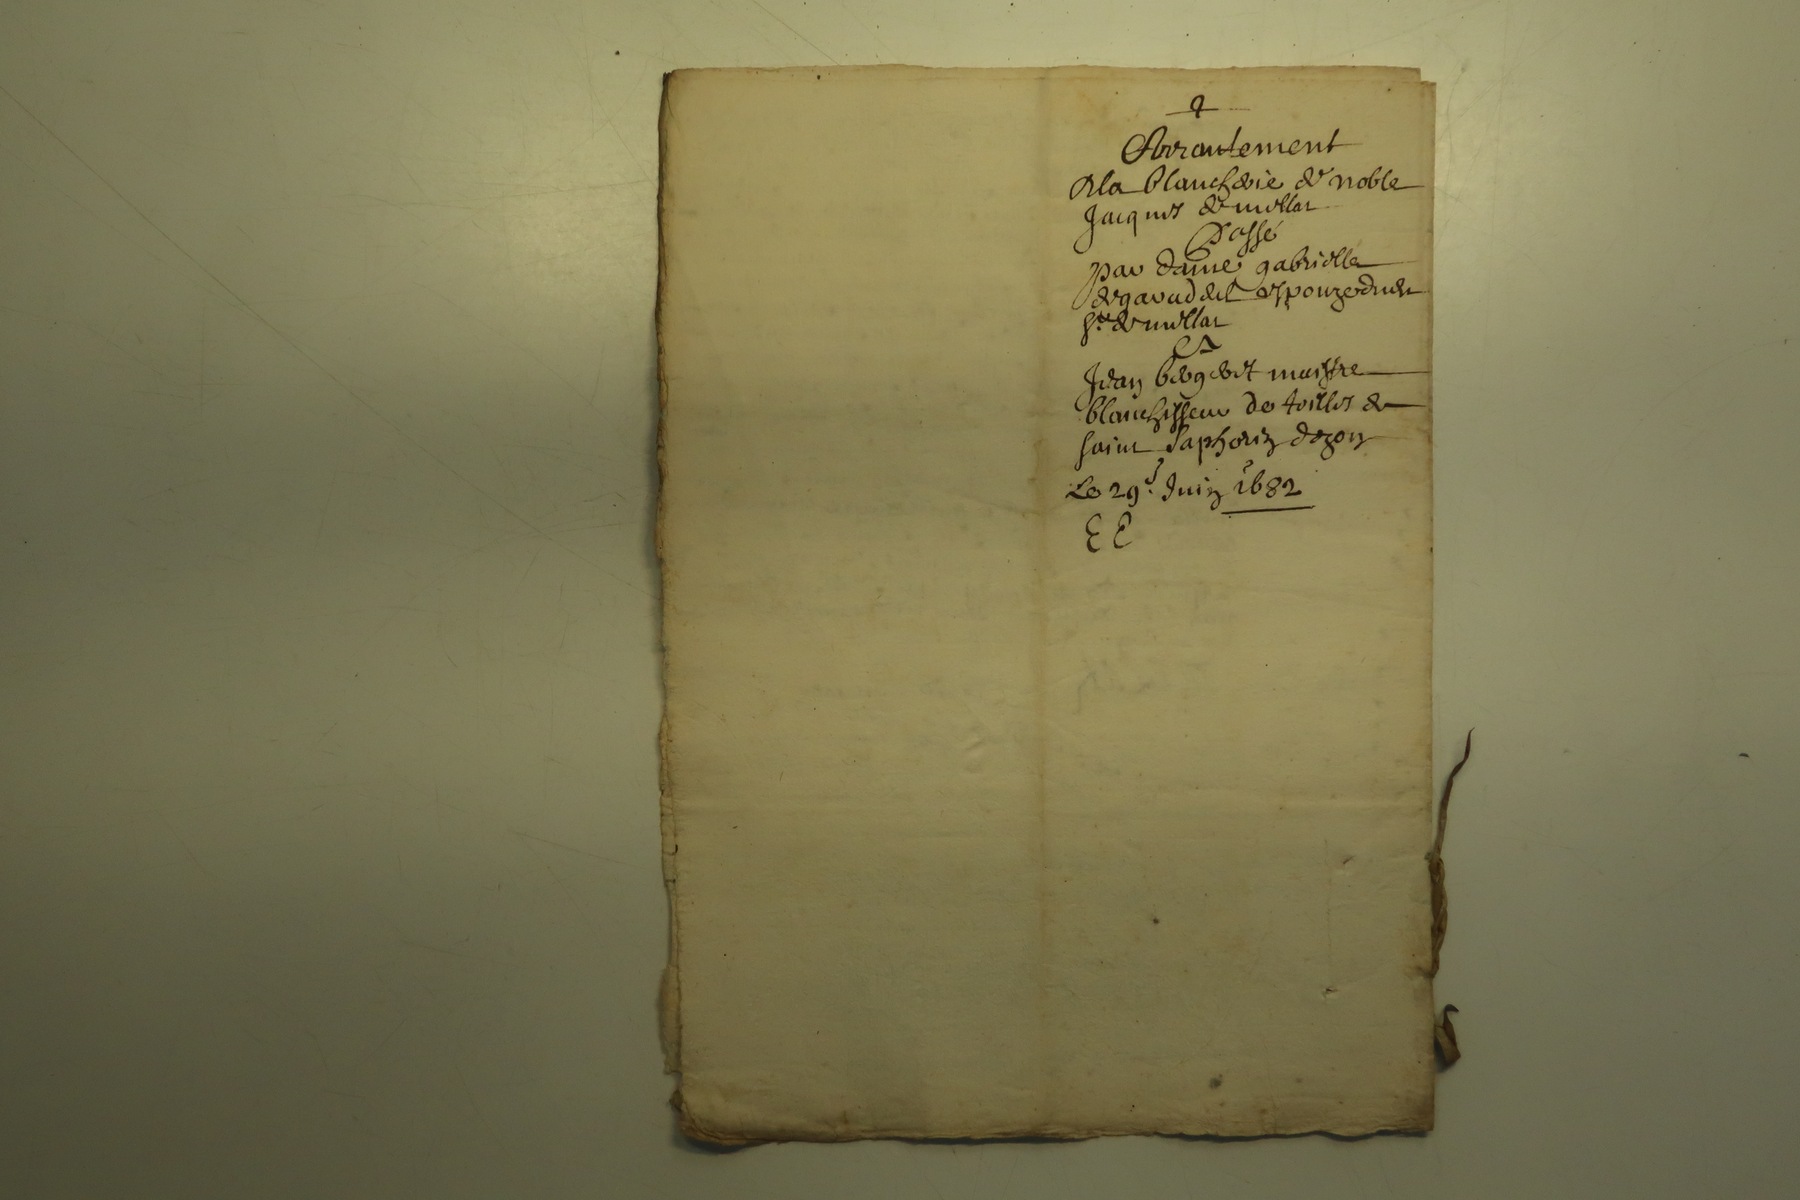 Arrantement
de la blancherie de noble
Jacques de millar
Passé
par dame gabrielle
espouze dudit
Sr. de millar
Et
Jean maistre
blanchisseur de toilles de
saint Saphorin dozon
Le 29e. Juin 1682
EE